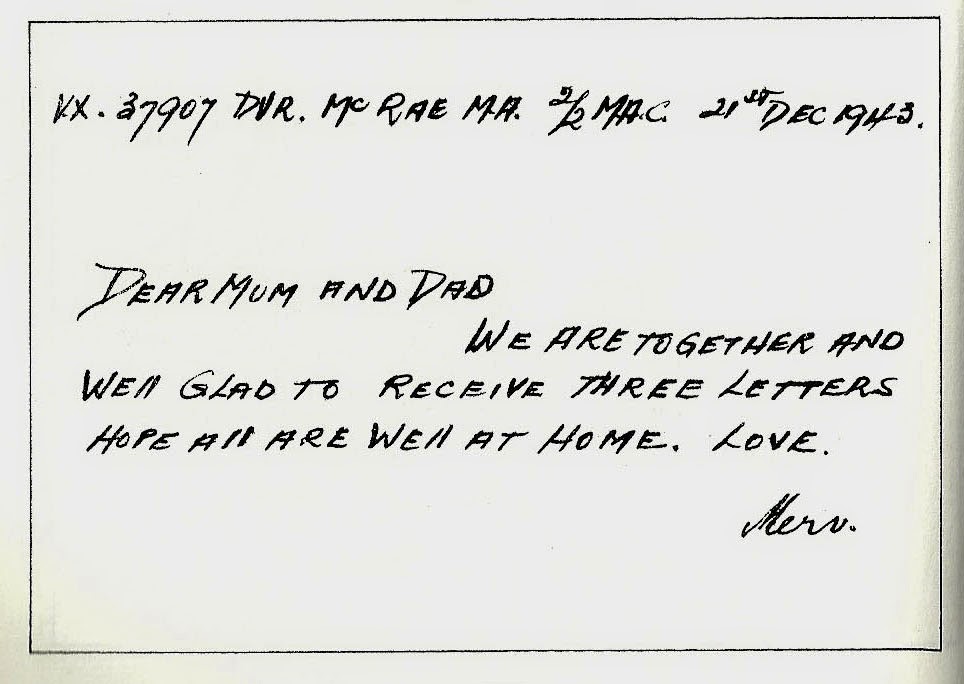 VX. 37907 DVR. McRAE M.A. 2/2 M.A.C. 21ST DEC 1943.
DEAR MUM AND DAD
WE ARE TOGETHER AND
WEll GLAD TO RECEIVE THREE LETTERS
HOPE All ARE WEll AT HOME. LOVE.
Merv.